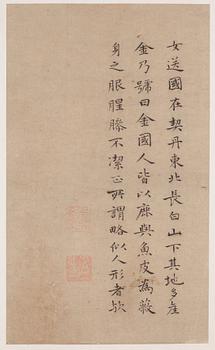 女送國在契丹東北長白山下其地多產
金乃號曰金國人皆以麻與魚皮為蔽
身之服腥臊不潔正所謂略似人形者欤